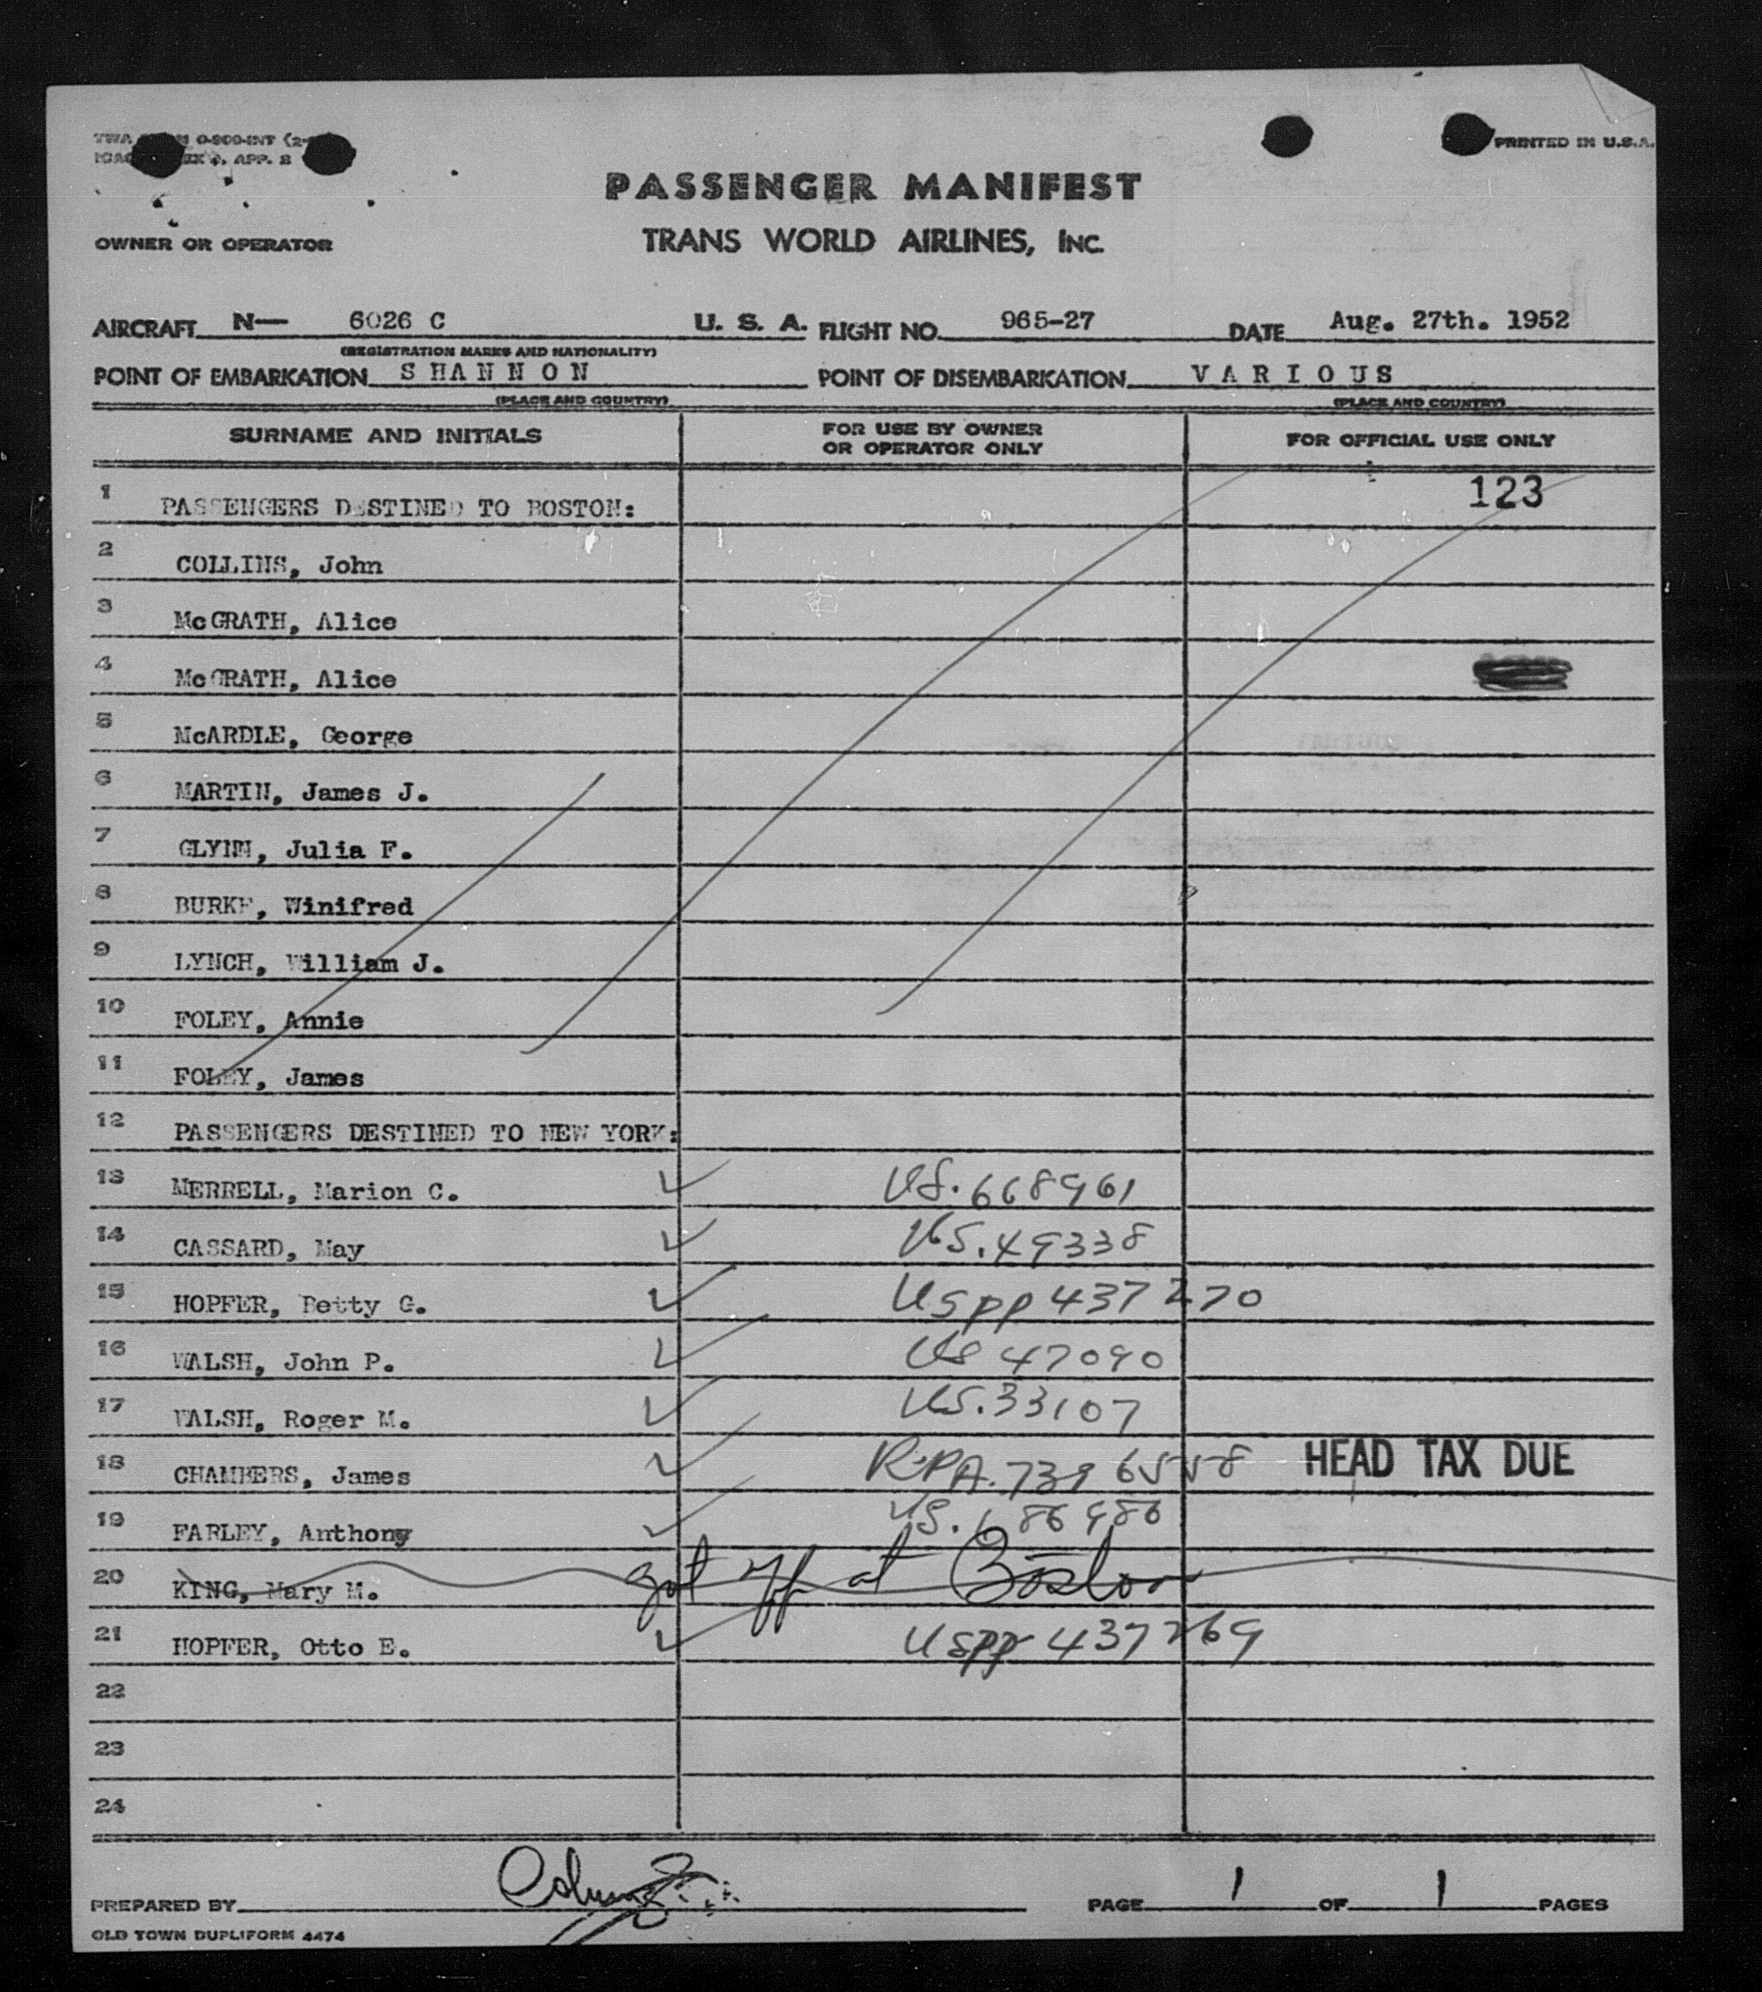 PRINTED IN U.S.A.
APP.
PASSENGER MANIFEST
OWNER OR OPERATOR
TRANS WORLD AIRLINES, INC.
AIRCRAFT N— 6026 C U. S. A. FLIGHT NO. 965-27 DATE Aug. 27th. 1952
(REGISTRATION MARKS AND NATIONALITY)
POINT OF EMBARKATION S H A N N O N POINT OF DISEMBARKATION V A R I O U S
(PLACE AND COUNTRY) (PLACE AND COUNTRY)
SURNAME AND INITIALS FOR USE BY OWNER OR OPERATOR ONLY FOR OFFICIAL USE ONLY
1 PASSENGERS DESTINED TO BOSTON: 123
2 COLLINS, John
3 McGRATH, Alice
4 McGRATH, Alice
5 McARDLE, George
6 MARTIN, James J.
7 GLYNN, Julia F.
8 BURKE, Winifred
9 LYNCH, William J.
10 FOLEY, Annie
11 FOLEY, James
12 PASSENGERS DESTINED TO NEW YORK:
13 MERRELL, Marion C. ✓ US. 668961
14 CASSARD, May ✓ US. 49338
15 HOPFER, Betty G. ✓ US pp 437270
16 WALSH, John P. ✓ US 47090
17 WALSH, Roger M. ✓ US. 33107
18 CHAMBERS, James ✓ R.P.A. 739 6558 HEAD TAX DUE
19 FARLEY, Anthony ✓ US. 186986
20 KING, Mary M. got off at Boston
21 HOPFER, Otto E. ✓ US pp 437269
22
23
24
PREPARED BY PAGE 1 OF 1 PAGES
OLD TOWN DUPLIFORM 4474